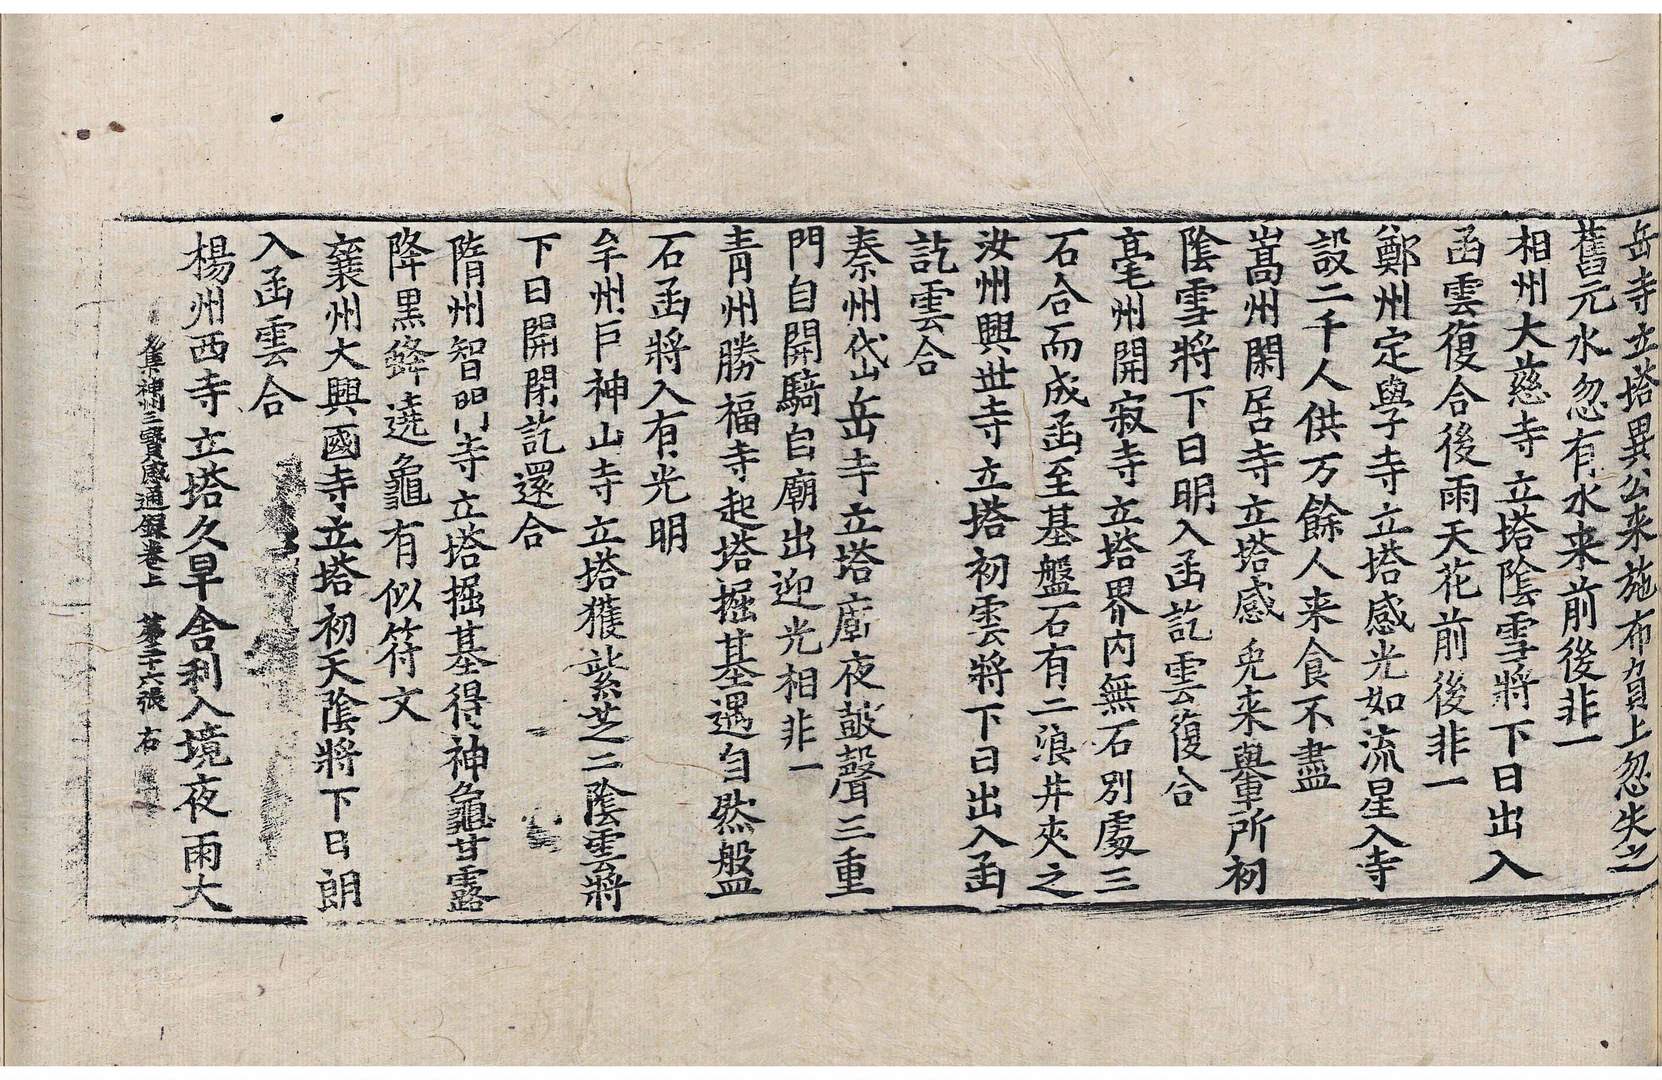 岳寺立塔異公来施布負上忽失之
舊元水忽有水来前後非一
相州大慈寺立塔陰雪將下日出入
函雲復合後雨天花前後非一
鄭州定學寺立塔感光如流星入寺
設二千人供万餘人来食不盡
嵩州閑居寺立塔感兎来轝所初
陰雪將下日明入函訖雲復合
亳州開寂寺立塔界內無石別處三
石合而成函至基盤石有二浪井夾之
汝州興世寺立塔初雲將下日出入函
訖雲合
秦州岱岳寺立塔廟夜皷聲三重
門自開騎自廟出迎光相非一
青州勝福寺起塔掘基遇自然盤
石函將入有光明
牟州巨神山寺立塔獲紫芝二陰雲將
下日開閉訖還合
隋州智門寺立塔掘基得神龜甘露
降黑蜂遶龜有似符文
襄州大興國寺立塔初天陰將下日朗
入函雲合
楊州西寺立塔久旱舍利入境夜雨大
集神州三寶感通録卷上 第二十六張 右